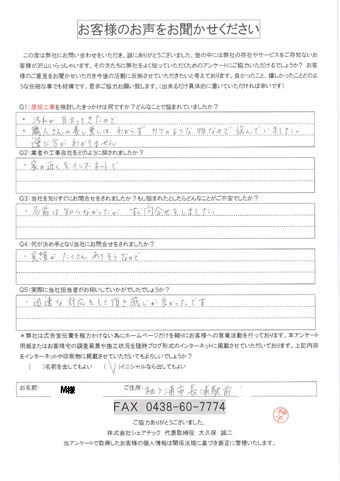 お客様のお声をお聞かせください
この度は弊社にお問い合わせをいただき、誠にありがとうございました。世の中には弊社の存在やサービスをご存知ないお
客様が沢山いらっしゃいます。その方たちに弊社をよく知っていただくためのアンケートにご協力いただけるでしょうか？お客
様のご意見をお聞かせいただき今後の活動に反映させていただきたいと考えております。良かったこと、嬉しかったことどのよ
うな些細な事でも結構です。是非ご協力お願い致します。（出来るだけ具体的に書いていただければ幸いです）
Q1：屋根工事を検討したきっかけは何ですか？どんなことで悩まれていましたか？
・汚れが目立ってきたので
・職人さんの善し悪しは、わからずカケのような物なので悩んでいました。
選び方がわかりません
Q2：業者や工事会社をどのように探されましたか？
・家の近くをインターネットで
Q3：当社を知りすぐにお問合せをされましたか？もし悩まれたとしたらどんなことがご不安でしたか？
・名前は知らなかったが、すぐ問合せをしました。
Q4：何が決め手となり当社にお問合せをされましたか？
・実績がたくさんありそうなので
Q5：実際に当社担当者がお伺いしていかがでしたでしょうか？
・迅速な対応をして頂き感じが良かったです
＊弊社は広告宣伝費を極力かけない為にホームページだけを頼りにお客様への営業活動を行っております。本アンケート
用紙またはお客様宅の調査風景や施工状況を随時ブログ形式のインターネットに掲載させていただいております。上記内容
をインターネットや印刷物に掲載させていただいてもよろしいでしょうか？
（　）名前を出してもよい　（✓）イニシャルなら出してもよい
お名前：　M様　ご住所：　袖ヶ浦市長浦駅前
FAX 0438-60-7774
ご協力ありがとうございました。
株式会社シェアテック　代表取締役　大久保 誠二
当アンケートで取得したお客様の個人情報は関係法規に基づき厳正に管理いたします。